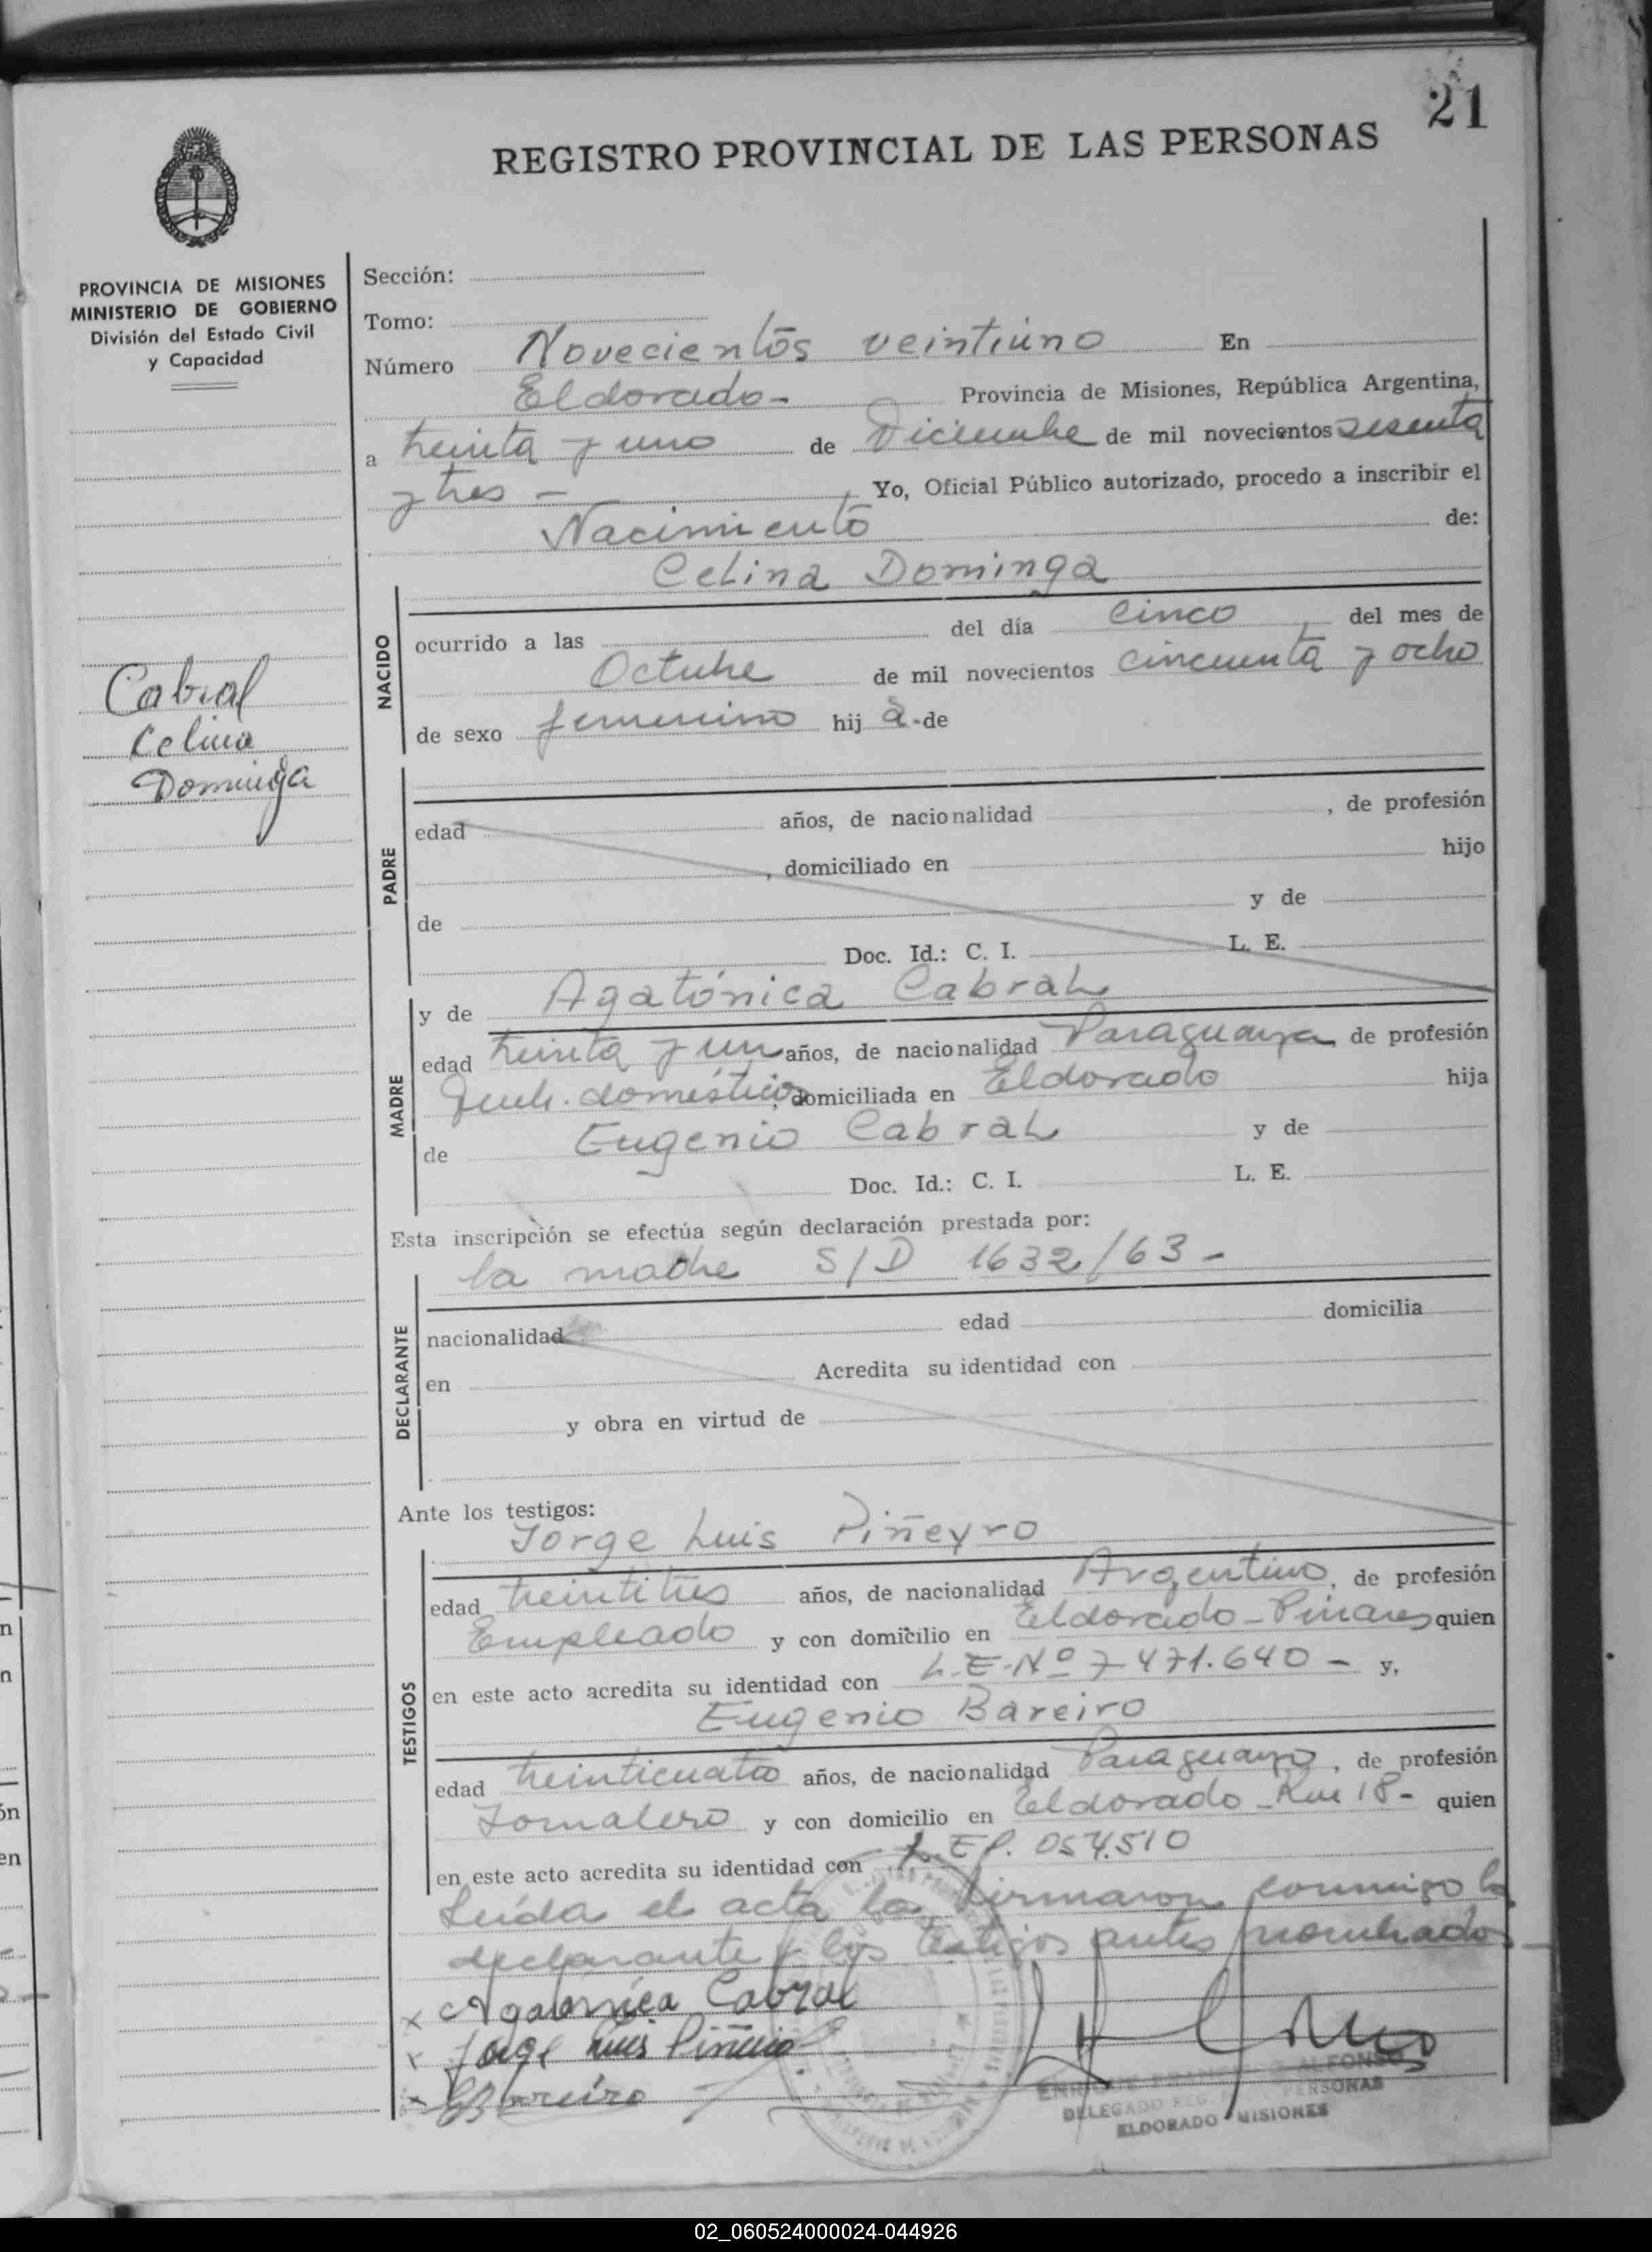 21
REGISTRO PROVINCIAL DE LAS PERSONAS
PROVINCIA DE MISIONES
MINISTERIO DE GOBIERNO
División del Estado Civil
y Capacidad
Cabral
Celina
Dominga
Sección:
Tomo:
Número Novecientos veintiuno En
Eldorado- Provincia de Misiones, República Argentina,
a treinta y uno de Diciembre de mil novecientos sesenta
y tres - , Yo, Oficial Público autorizado, procedo a inscribir el
Nacimiento de:
Celina Dominga
NACIDO
ocurrido a las del día cinco del mes de
Octubre de mil novecientos cincuenta y ocho
de sexo femenino hij a-de
PADRE
edad años, de nacionalidad , de profesión
, domiciliado en hijo
de y de
Doc. Id.: C. I. L. E.
y de Agatónica Cabral
MADRE
edad treinta y un años, de nacionalidad Paraguaya de profesión
domiciliada en Eldorado hija
de Eugenio Cabral y de
Doc. Id.: C. I. L. E.
Esta inscripción se efectúa según declaración prestada por:
la madre S/D 1632/63-
DECLARANTE
nacionalidad edad domicilia
en Acredita su identidad con
y obra en virtud de
Ante los testigos:
Jorge Luis Piñeyro
TESTIGOS
edad treintitres años, de nacionalidad Argentino, de profesión
Empleado y con domicilio en Eldorado-Pinares quien
en este acto acredita su identidad con L.E-Nº 7471.640- y,
Eugenio Bareiro
edad treinticuatro años, de nacionalidad Paraguayo, de profesión
Jornalero y con domicilio en Eldorado-Km 18- quien
en este acto acredita su identidad con 054.510
Leida el acta la firmaron conmigo la
declarante y los testigos antes nombrados
x Agatónica Cabral
x Jorge Luis Piñeiro
x EBareiro
ALFONSO
DELEGADO REG. PERSONAS
ELDORADO MISIONES
02_060524000024-044926